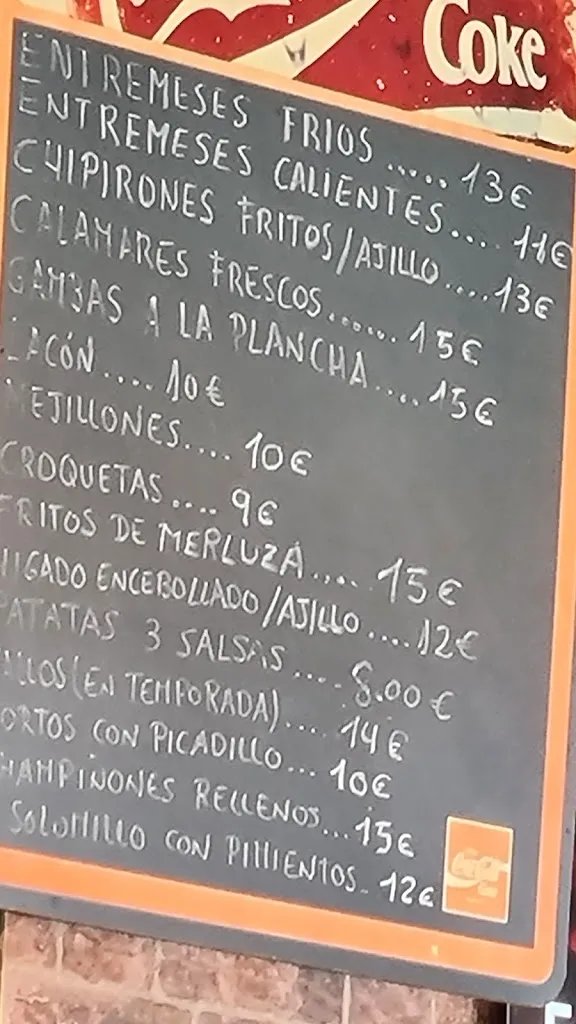 Coke
ENTREMESES FRIOS ..... 13€
ENTREMESES CALIENTES.... 11€
CHIPIRONES FRITOS/AJILLO ....13€
CALAMARES FRESCOS....... 15€
GAMBAS A LA PLANCHA....15€
LACÓN.... 10€
MEJILLONES.... 10€
CROQUETAS .... 9€
FRITOS DE MERLUZA.... 15€
HIGADO ENCEBOLLADO/AJILLO ....12€
PATATAS 3 SALSAS .... 8.00 €
(EN TEMPORADA).... 14€
TORTOS CON PICADILLO... 10€
CHAMPIÑONES RELLENOS...15€
SOLOMILLO CON PIMIENTOS.. 12€